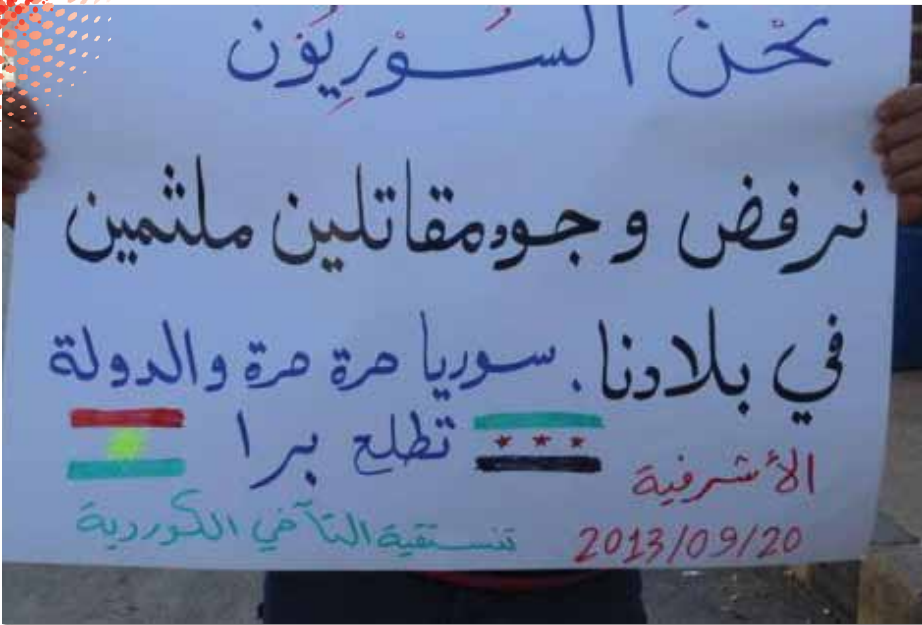 نَحْنُ السُّوْرِيُّوْن
نرفض وجود مقاتلين ملثمين
في بلادنا. سوريا حرة حرة والدولة
تطلع برا
الأشرفية
تنسقية التآخي الكوردية
2013/09/20